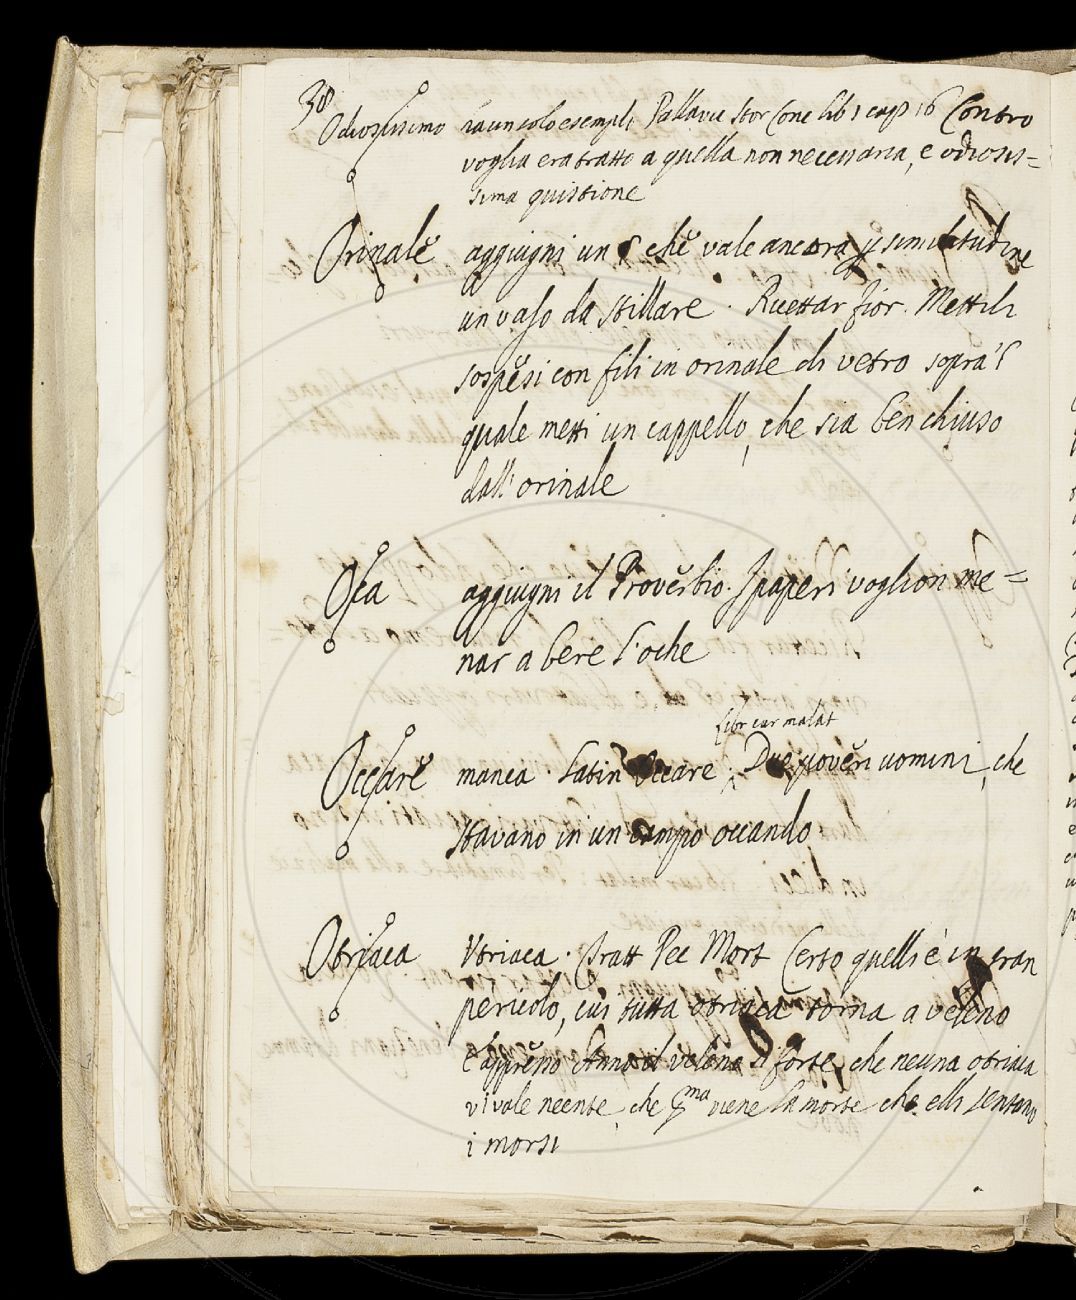 38
Odiosissimo ha un solo esempli Pallavic Stor Conc lib 1 cap 16 Contro
voglia era tratto a quella non necessaria, e odiosis=
sima quistione
Orinale aggiugni un § che vale ancora p similitudine
un vaso da stillare . Ricettar fior. Mettili
sospesi con fili in orinale di vetro sopra 'l
quale metti un cappello, che sia ben chiuso
dall' orinale
Oca aggiugni il Proverbio. I paperi voglion me=
nar a bere l'oche
libr cur malat
Occare manca . Latin Occare . Due poveri uomini, che
stavano in un campo occando
Otriaca Utriaca . Tratt Pec Mort Certo quelli è in gran
pericolo, cui tutta otriaca torna a veleno
e appresso Anno il veleno sì forte, che neuna otriaca
vi vale neente, che pma viene la morte che elli sentano
i morsi